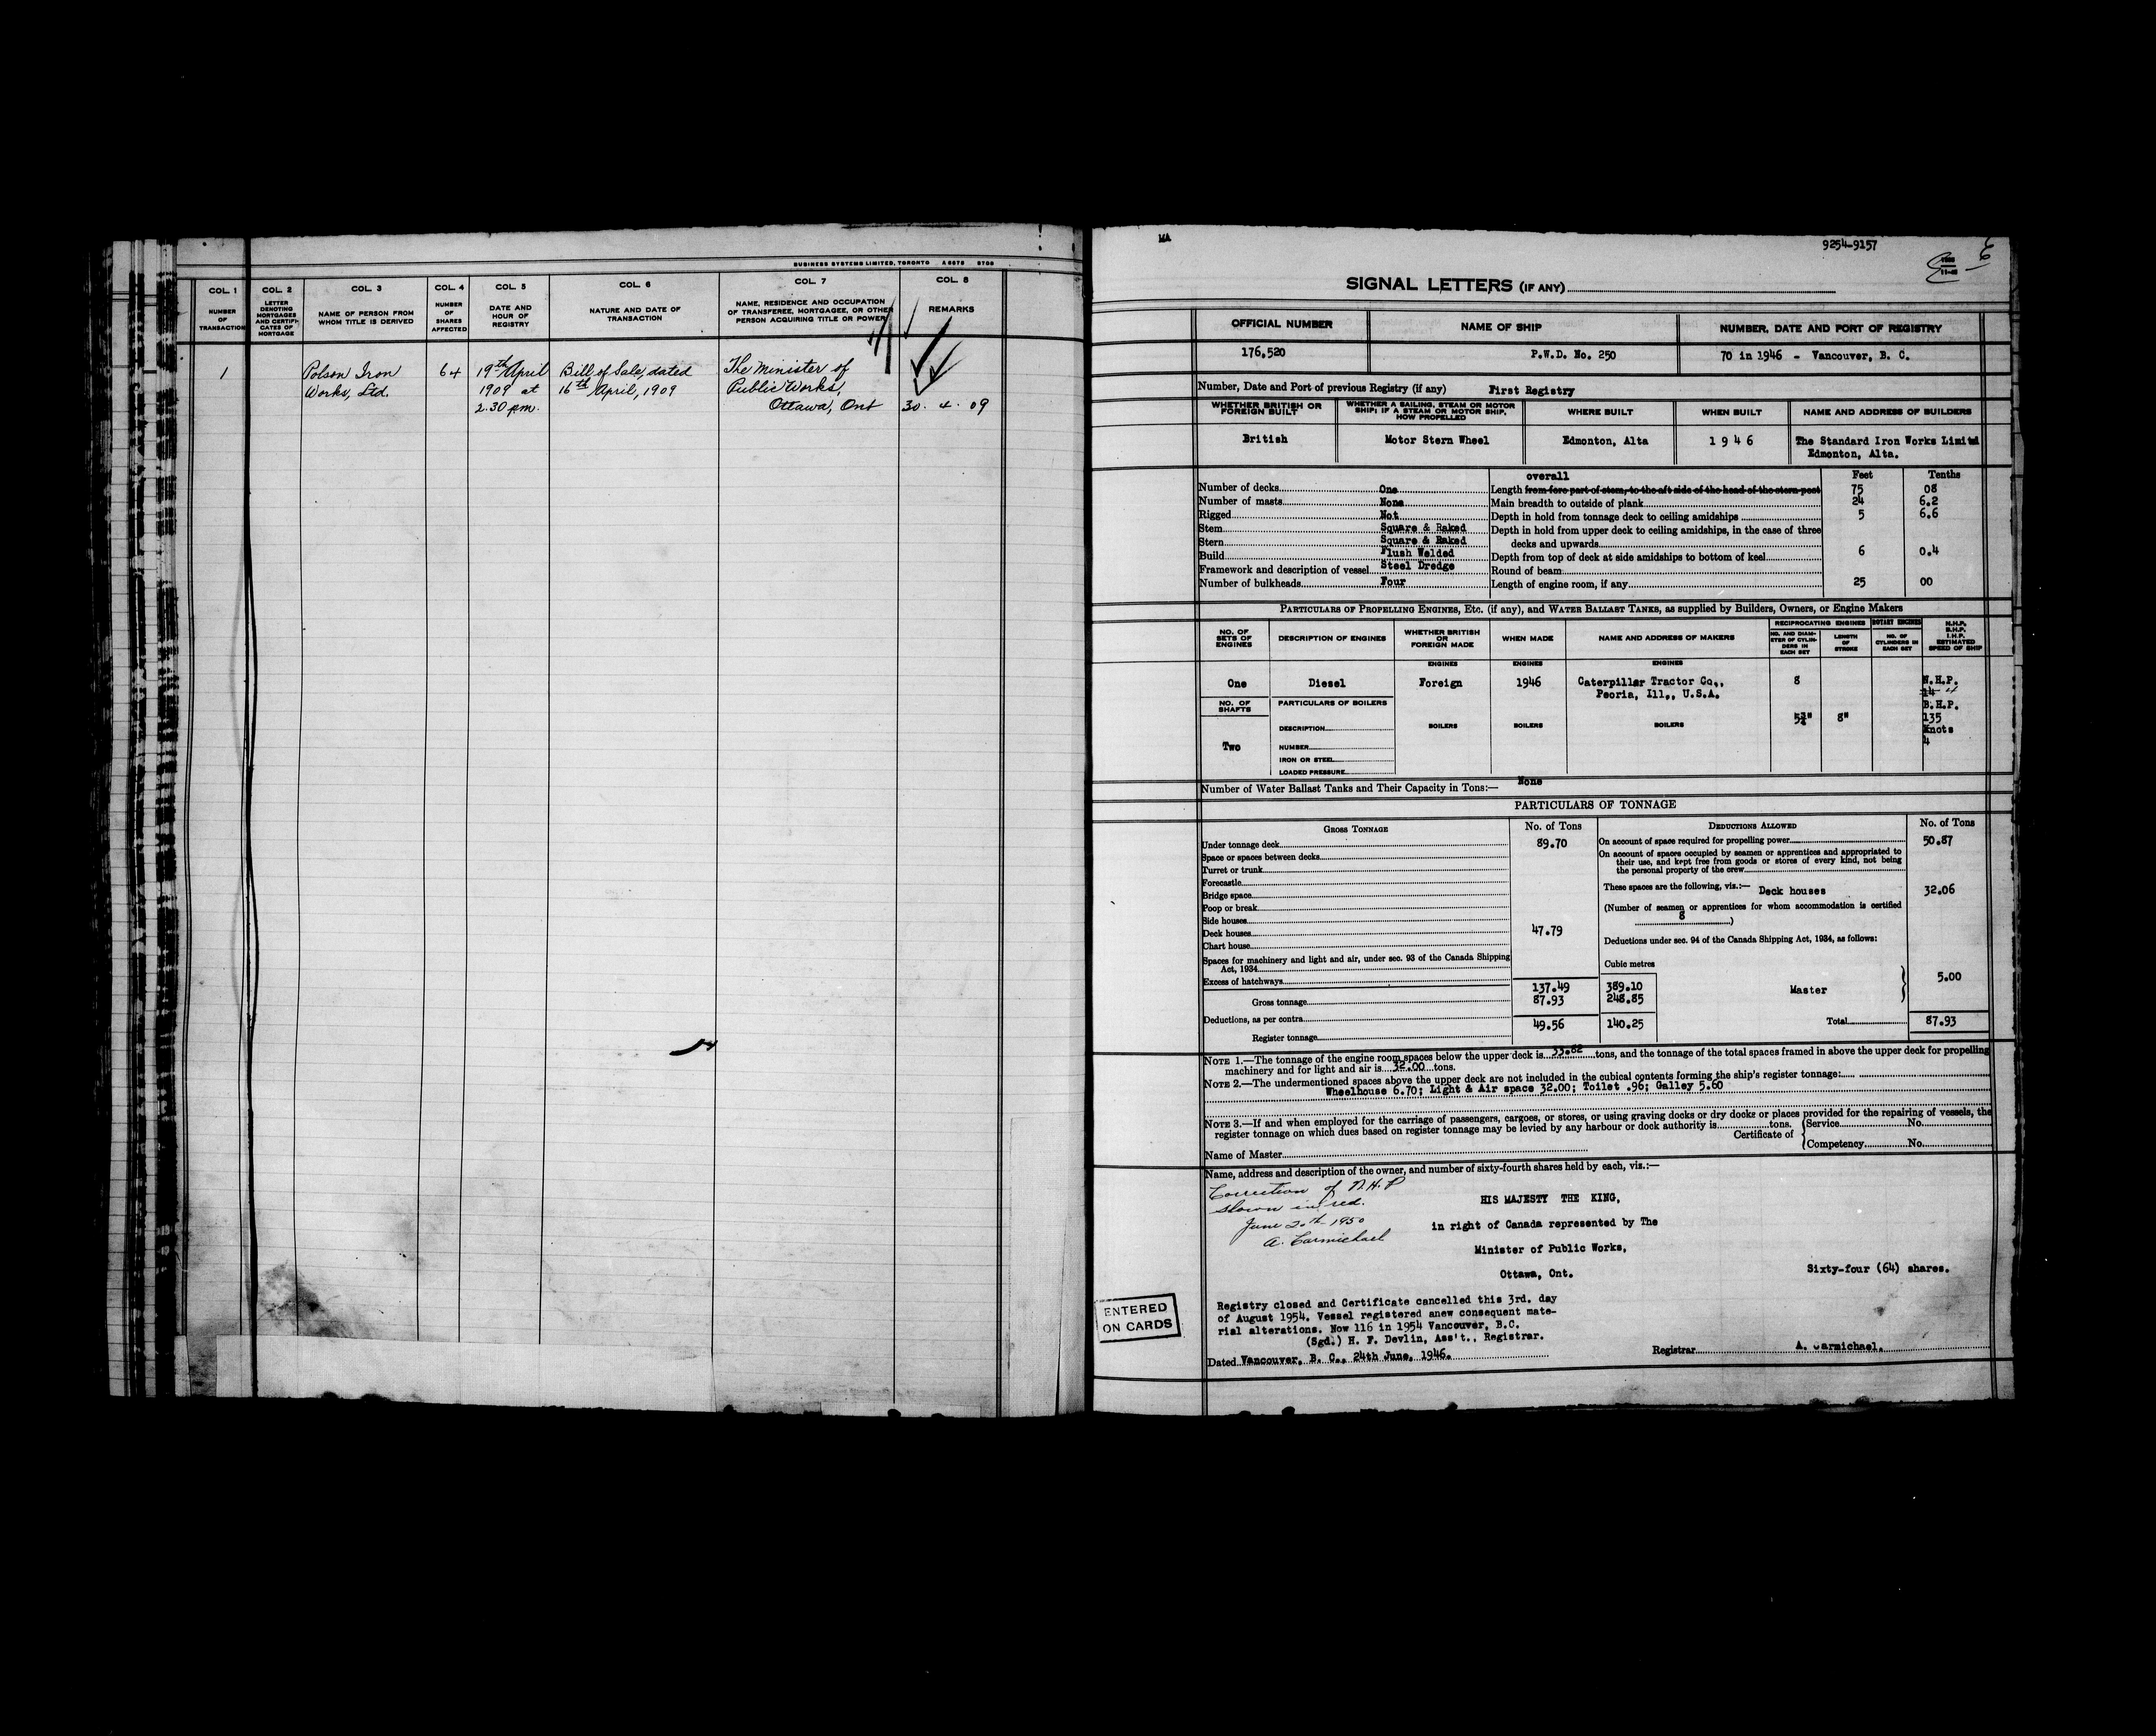 BUSINESS SYSTEMS LIMITED, TORONTO A 6578 5708
COL. 1 COL. 2 COL. 3 COL. 4 COL. 5 COL. 6 COL. 7 COL. 8
NUMBER OF TRANSACTION
LETTER DENOTING MORTGAGES AND CERTIFICATES OF MORTGAGE
NAME OF PERSON FROM WHOM TITLE IS DERIVED
NUMBER OF SHARES AFFECTED
DATE AND HOUR OF REGISTRY
NATURE AND DATE OF TRANSACTION
NAME, RESIDENCE AND OCCUPATION OF TRANSFEREE, MORTGAGEE, OR OTHER PERSON ACQUIRING TITLE OR POWER
REMARKS
1 Polson Iron 64 19th April Bill of Sale, dated The Minister of
Works, Ltd. 1909 at 16th April, 1909 Public Works,
2.30 p.m. Ottawa, Ont 30. 4. 09
MA
9254-9157
6
SIGNAL LETTERS (IF ANY)
OFFICIAL NUMBER NAME OF SHIP NUMBER, DATE AND PORT OF REGISTRY
176,520 P.W.D. No. 250 70 in 1946 - Vancouver, B. C.
Number, Date and Port of previous Registry (if any) First Registry
WHETHER BRITISH OR FOREIGN BUILT
WHETHER A SAILING, STEAM OR MOTOR SHIP; IF A STEAM OR MOTOR SHIP, HOW PROPELLED
WHERE BUILT WHEN BUILT NAME AND ADDRESS OF BUILDERS
British Motor Stern Wheel Edmonton, Alta 1 9 4 6 The Standard Iron Works Limited
Edmonton, Alta.
overall Feet Tenths
Number of decks One Length from fore part of stem, to the aft side of the head of the stern post 75 08
Number of masts None Main breadth to outside of plank 24 6.2
Rigged Not Depth in hold from tonnage deck to ceiling amidships 5 6.6
Stem Square & Raked Depth in hold from upper deck to ceiling amidships, in the case of three
Stern Square & Raked decks and upwards
Build Flush Welded Depth from top of deck at side amidships to bottom of keel 6 0.4
Framework and description of vessel Steel Dredge Round of beam
Number of bulkheads Four Length of engine room, if any 25 00
PARTICULARS OF PROPELLING ENGINES, ETC. (if any), and WATER BALLAST TANKS, as supplied by Builders, Owners, or Engine Makers
NO. OF SETS OF ENGINES
DESCRIPTION OF ENGINES
WHETHER BRITISH OR FOREIGN MADE
WHEN MADE
NAME AND ADDRESS OF MAKERS
RECIPROCATING ENGINES ROTARY ENGINES
NO. AND DIAMETER OF CYLINDERS IN EACH SET
LENGTH OF STROKE
NO. OF CYLINDERS IN EACH SET
N.H.P. B.H.P. I.H.P. ESTIMATED SPEED OF SHIP
ENGINES ENGINES ENGINES
One Diesel Foreign 1946 Caterpillar Tractor Co., 8 N.H.P.
Peoria, Ill., U.S.A. 14
NO. OF SHAFTS PARTICULARS OF BOILERS B.H.P.
DESCRIPTION BOILERS BOILERS BOILERS 5¾" 8" 135
Knots
Two NUMBER 4
IRON OR STEEL
LOADED PRESSURE
Number of Water Ballast Tanks and Their Capacity in Tons:— None
PARTICULARS OF TONNAGE
GROSS TONNAGE No. of Tons DEDUCTIONS ALLOWED No. of Tons
Under tonnage deck 89.70 On account of space required for propelling power 50.87
Space or spaces between decks On account of spaces occupied by seamen or apprentices and appropriated to
Turret or trunk their use, and kept free from goods or stores of every kind, not being
Forecastle the personal property of the crew
Bridge space These spaces are the following, viz.:— Deck houses 32.06
Poop or break (Number of seamen or apprentices for whom accommodation is certified
Side houses 8 )
Deck houses 47.79
Chart house Deductions under sec. 94 of the Canada Shipping Act, 1934, as follows:
Spaces for machinery and light and air, under sec. 93 of the Canada Shipping
Act, 1934 Cubic metres
Excess of hatchways
Gross tonnage 137.49 389.10 Master 5.00
87.93 248.85
Deductions, as per contra
49.56 140.25 Total 87.93
Register tonnage
NOTE 1.—The tonnage of the engine room spaces below the upper deck is 33.62 tons, and the tonnage of the total spaces framed in above the upper deck for propelling
machinery and for light and air is 32.00 tons.
NOTE 2.—The undermentioned spaces above the upper deck are not included in the cubical contents forming the ship's register tonnage:
Wheelhouse 6.70; Light & Air space 32.00; Toilet .96; Galley 5.60
NOTE 3.—If and when employed for the carriage of passengers, cargoes, or stores, or using graving docks or dry docks or places provided for the repairing of vessels, the
register tonnage on which dues based on register tonnage may be levied by any harbour or dock authority is tons.
Certificate of Service No.
Competency No.
Name of Master
Name, address and description of the owner, and number of sixty-fourth shares held by each, viz.:—
Correction of N.H.P
shown in red.
June 20th 1950
A. Carmichael
HIS MAJESTY THE KING,
in right of Canada represented by The
Minister of Public Works,
Ottawa, Ont. Sixty-four (64) shares.
ENTERED
ON CARDS
Registry closed and Certificate cancelled this 3rd. day
of August 1954. Vessel registered anew consequent mate-
rial alterations. Now 116 in 1954 Vancouver, B.C.
(Sgd.) H. F. Devlin, Ass't.. Registrar.
Dated Vancouver, B. C., 24th June, 1946. Registrar A. Carmichael.